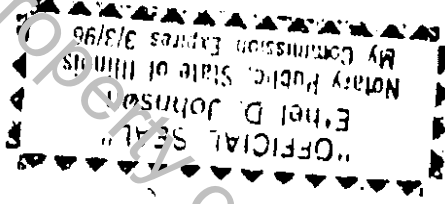 "OFFICIAL SEAL"
E'hel D. Johnson
Notary Public, State of Illinois
My Commission Expires 3/3/96
Property